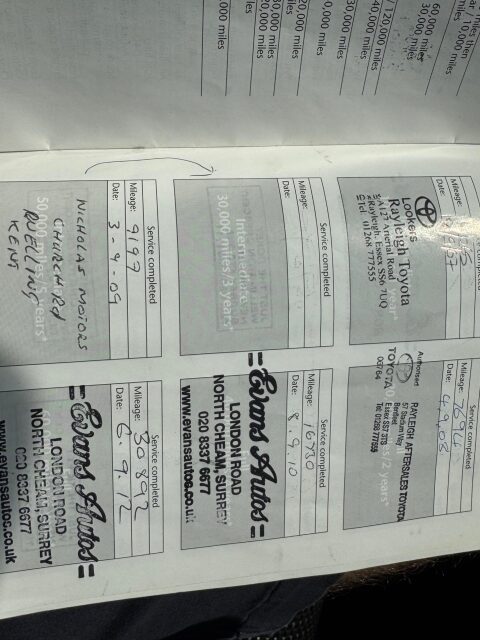 60,000 miles
30,000 miles
/ 10,000
miles
120,000 miles
40,000 miles
30,000 miles
20,000 miles
30,000 miles
20,000 miles
,000 miles
Mileage:
Date:
Lookers
Rayleigh Toyota
A127 Arterial Road
Rayleigh, Essex SS6 7UQ
Tel 01268 777555
Service completed
Mileage:
Date: 4.9.08
Authorised
TOYOTA
RAYLEIGH AFTERSALES TOYOTA
57 Stadium Way
Benfleet
Essex SS7 3TS
Tel: 01268 777555
Service completed
Mileage:
Date:
Intermediate
30,000 miles/3 years*
Service completed
Mileage: 16930
Date: 8.9.10
Evans Autos
LONDON ROAD
NORTH CHEAM, SURREY
020 8337 6677
www.evansautos.co.uk
Service completed
Mileage: 9197
Date: 3-9-09
50,000 miles/5 years*
NICHOLAS MOTORS
CHURCH RD
WELLING
KENT
Service completed
Mileage: 30892
Date: 6.9.12
Evans Autos
LONDON ROAD
NORTH CHEAM, SURREY
020 8337 6677
www.evansautos.co.uk